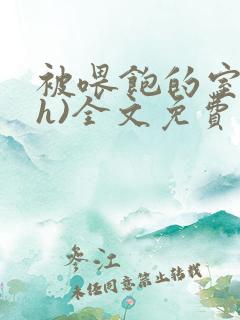 被喂飽的室
h)全文免費
參江
未经同意禁止转载